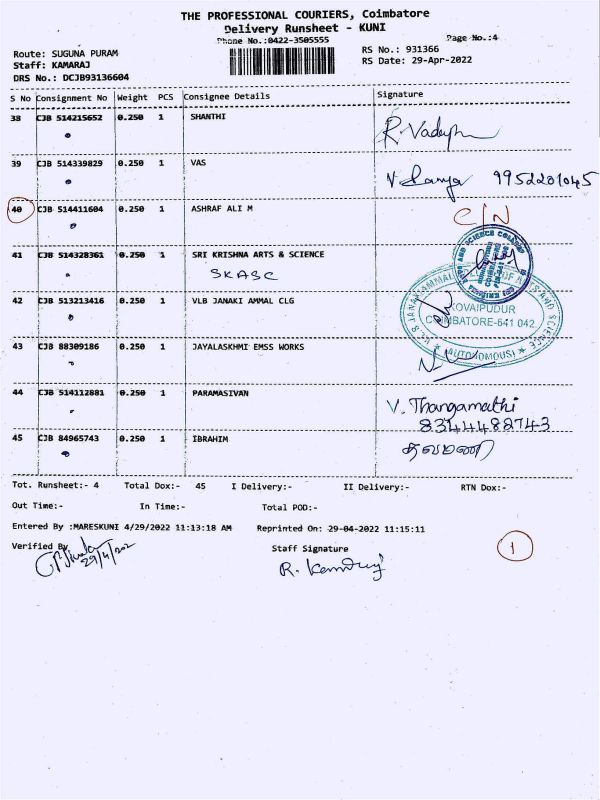 THE PROFESSIONAL COURIERS, Coimbatore
Delivery Runsheet - KUNI
Phone No.:0422-3505555
Page No.:4
Route: SUGUNA PURAM
RS No.: 931366
Staff: KAMARAJ
RS Date: 29-Apr-2022
DRS No.: DCJB93136604
S No Consignment No Weight PCS Consignee Details Signature
38 CJB 514215652 0.250 1 SHANTHI
39 CJB 514339829 0.250 1 VAS 9952201045
40 CJB 514411604 0.250 1 ASHRAF ALI M C/N
41 CJB 514328361 0.250 1 SRI KRISHNA ARTS & SCIENCE
SKASC
42 CJB 513213416 0.250 1 VLB JANAKI AMMAL CLG
KOVAIPUDUR
COIMBATORE-641 042
(AUTONOMOUS)
43 CJB 88309186 0.250 1 JAYALASKHMI EMSS WORKS
44 CJB 514112881 0.250 1 PARAMASIVAN V. Thangamathi
8344488743
45 CJB 84965743 0.250 1 IBRAHIM தவமணி
Tot. Runsheet:- 4 Total Dox:- 45 I Delivery:- II Delivery:- RTN Dox:-
Out Time:- In Time:- Total POD:-
Entered By :MARESKUNI 4/29/2022 11:13:18 AM Reprinted On: 29-04-2022 11:15:11
Verified By Staff Signature
1
29/4/202